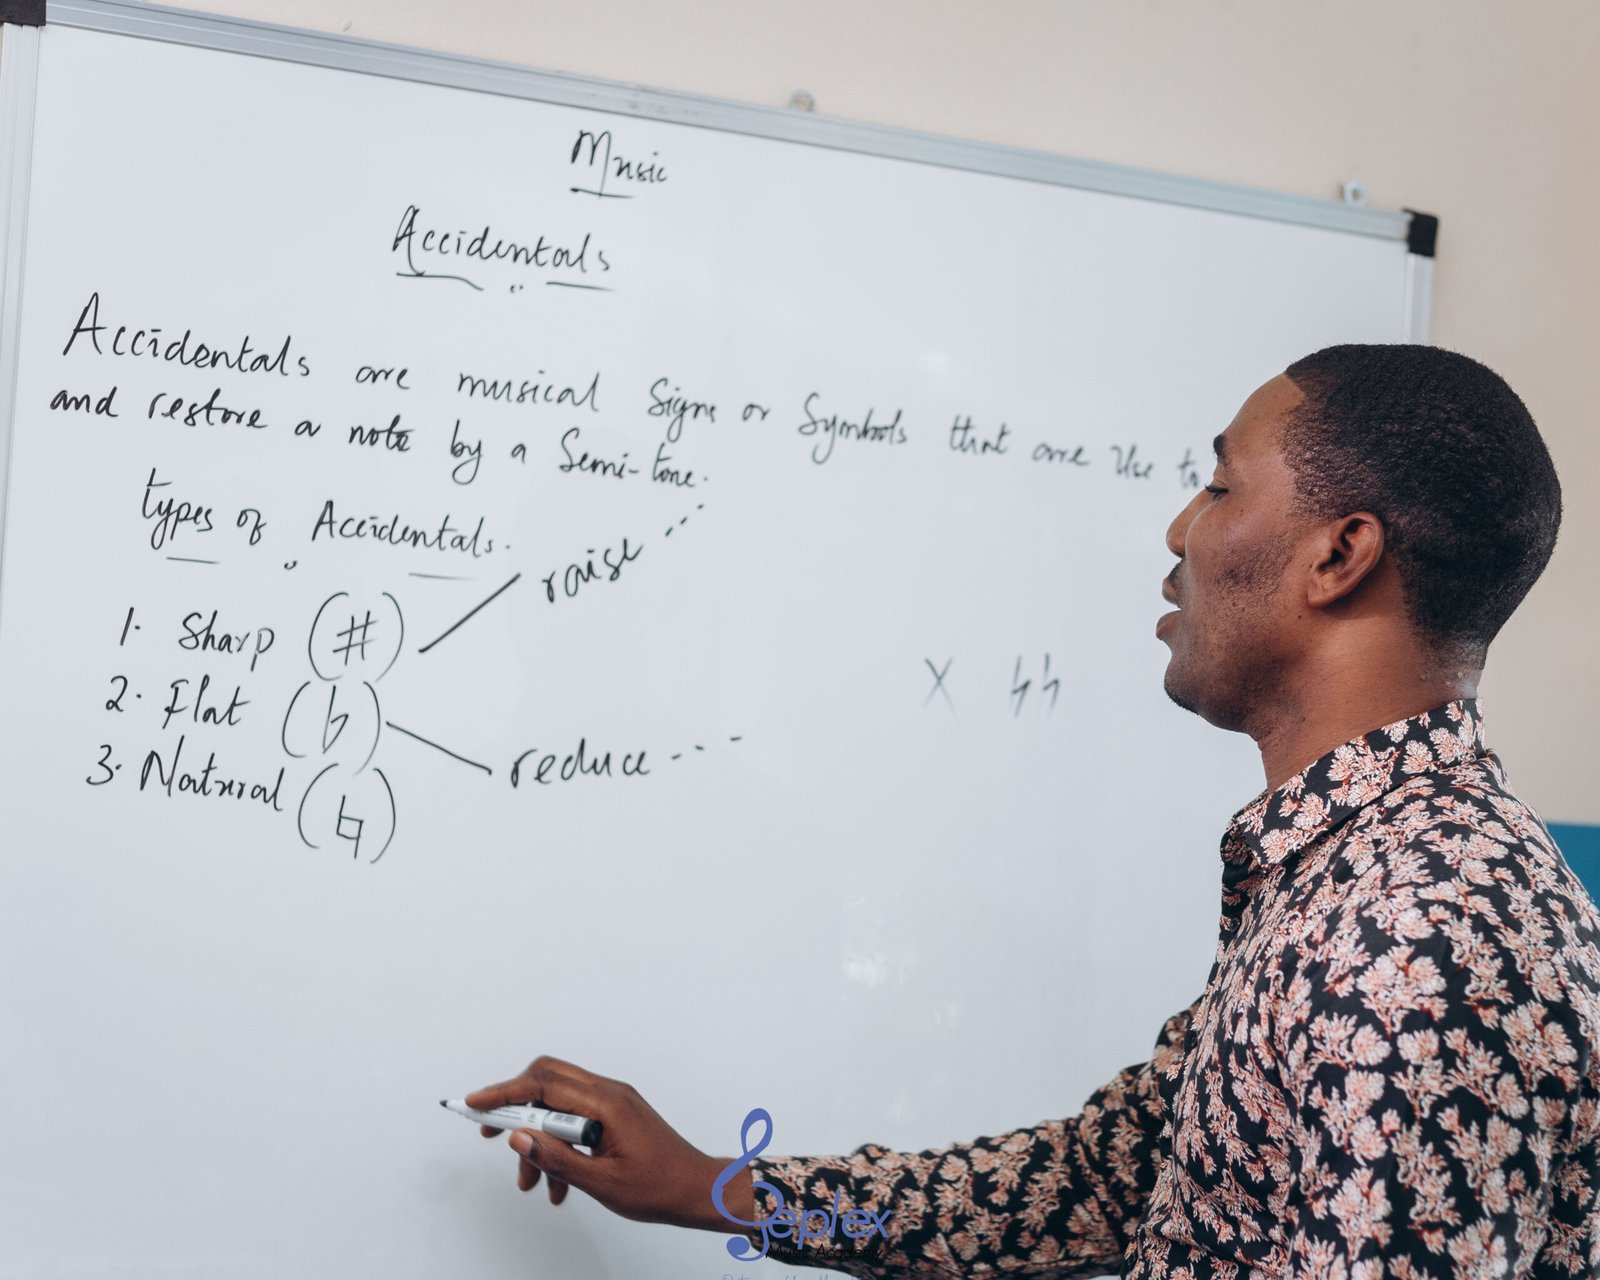 Music
Accidentals
Accidentals are musical Signs or Symbols that are Use to
and restore a note by a Semi-tone.
types of Accidentals.
1. Sharp (#) raise ---
2. Flat (♭) reduce ---
3. Natural (♮)
X
Seplex
Music Academy